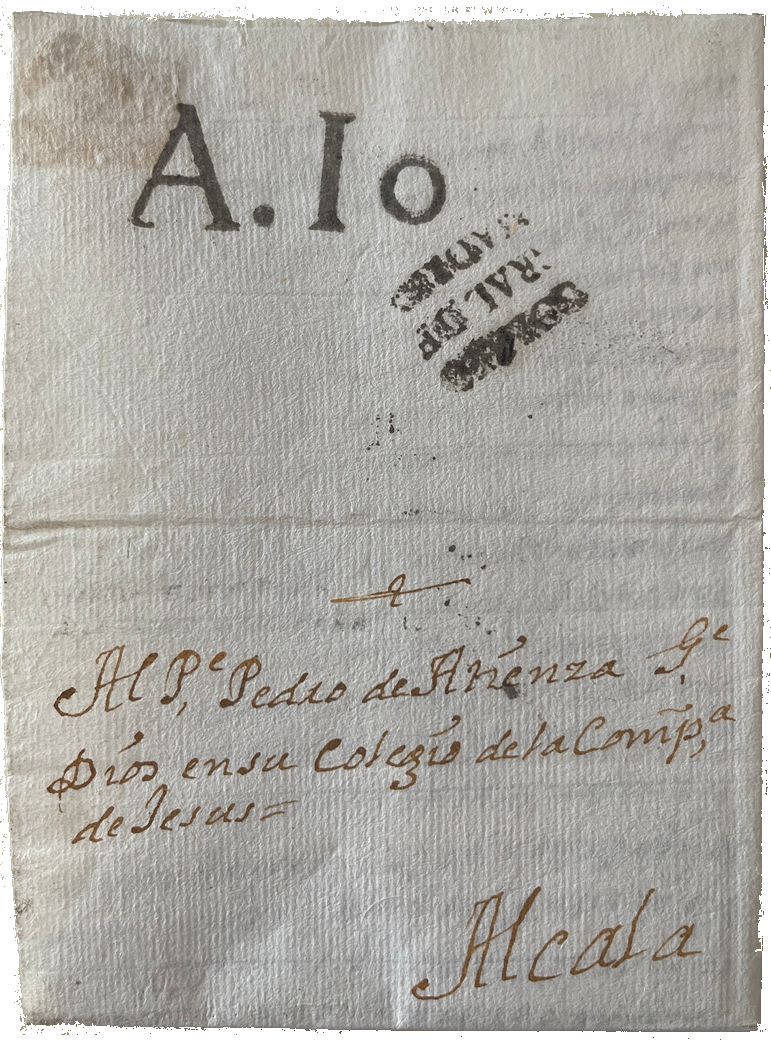 A.Io
CORREO
RAL DE
MADRID
Al P.e Pedro de Atienza G.e
Dios en su Colegio de la Comp.a
de Jesus =
Alcala